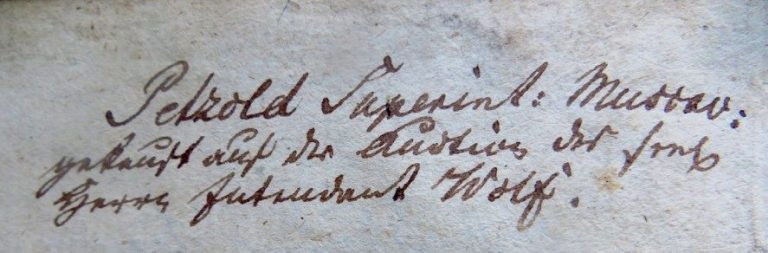 Petzold Superint: Muscav:
gekauft auf der Auction des seel.
Herrn Intendant Wolff.